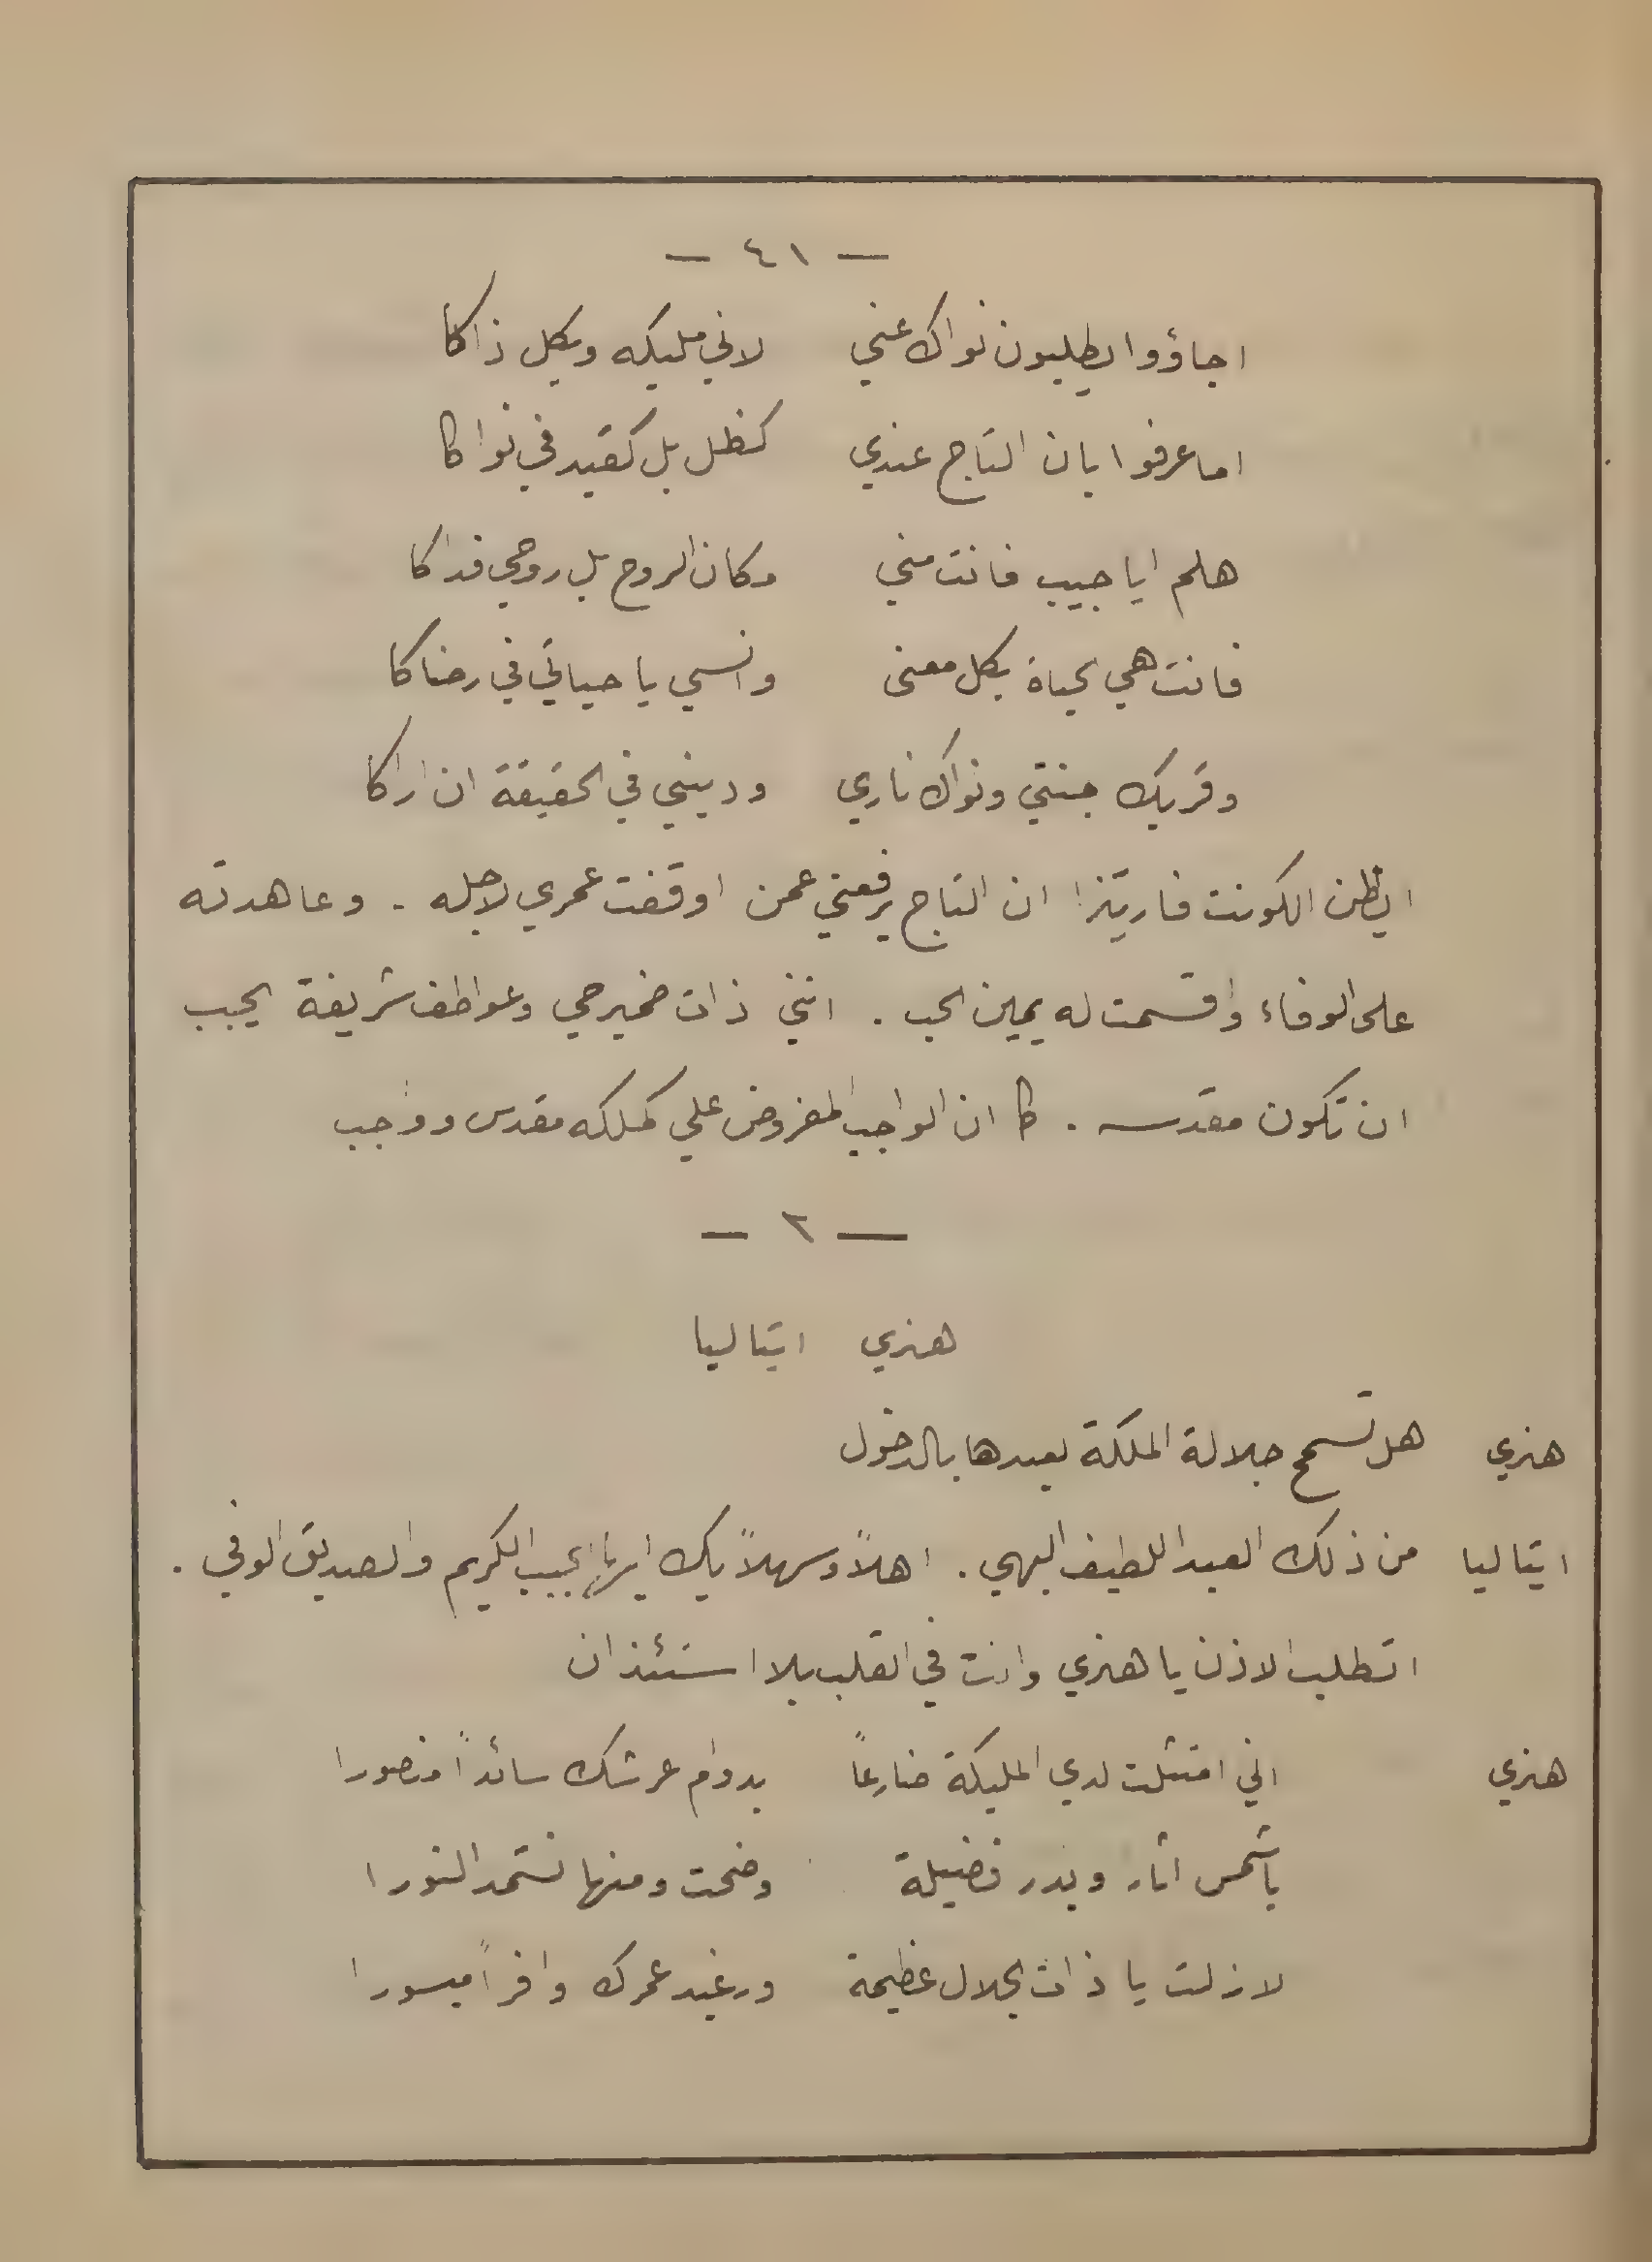 — ٤١ —
اجاؤوا يطلبون نواك عني لاني مليكه وبكل ذاكا
اما عرفوا بان التاج عندي كظل بل كقيد في نواكا
هلم ايا حبيب فانت مني مكان الروح بل روحي فداكا
فانت هي الحياة بكل معنى وانسي يا حياتي في رضاكا
وقربك جنتي ونواك ناري وديني في الحقيقة ان اراكا
ايظن الكونت فاريتزا ان التاج يرفعني عمن اوقفت عمري لاجله . وعاهدته
على الوفاء واقسمت له يمين الحب . انني ذات ضمير حي وعواطف شريفة يجب
ان تكون مقدسه . كما ان الواجب المفروض علي كملكه مقدس وواجب
— ٢ —
هنري ايتاليا
هنري هل تسمح جلالة الملكة لعبدها بالدخول
ايتاليا من ذلك العبد اللطيف البهي . اهلاً وسهلاً بك ايها الحبيب الكريم والصديق الوفي .
اتطلب الاذن يا هنري وانت في القلب بلا استئذان
هنري اني امتثلت لدى المليكة ضارعاً بدوام عرشك سائداً منصورا
ياشمس اثار وبدر فضيلة وضحت ومنها نستمد النورا
لازلت يا ذات الجلال عظيمة ورغيد عمرك وافراً ميسورا